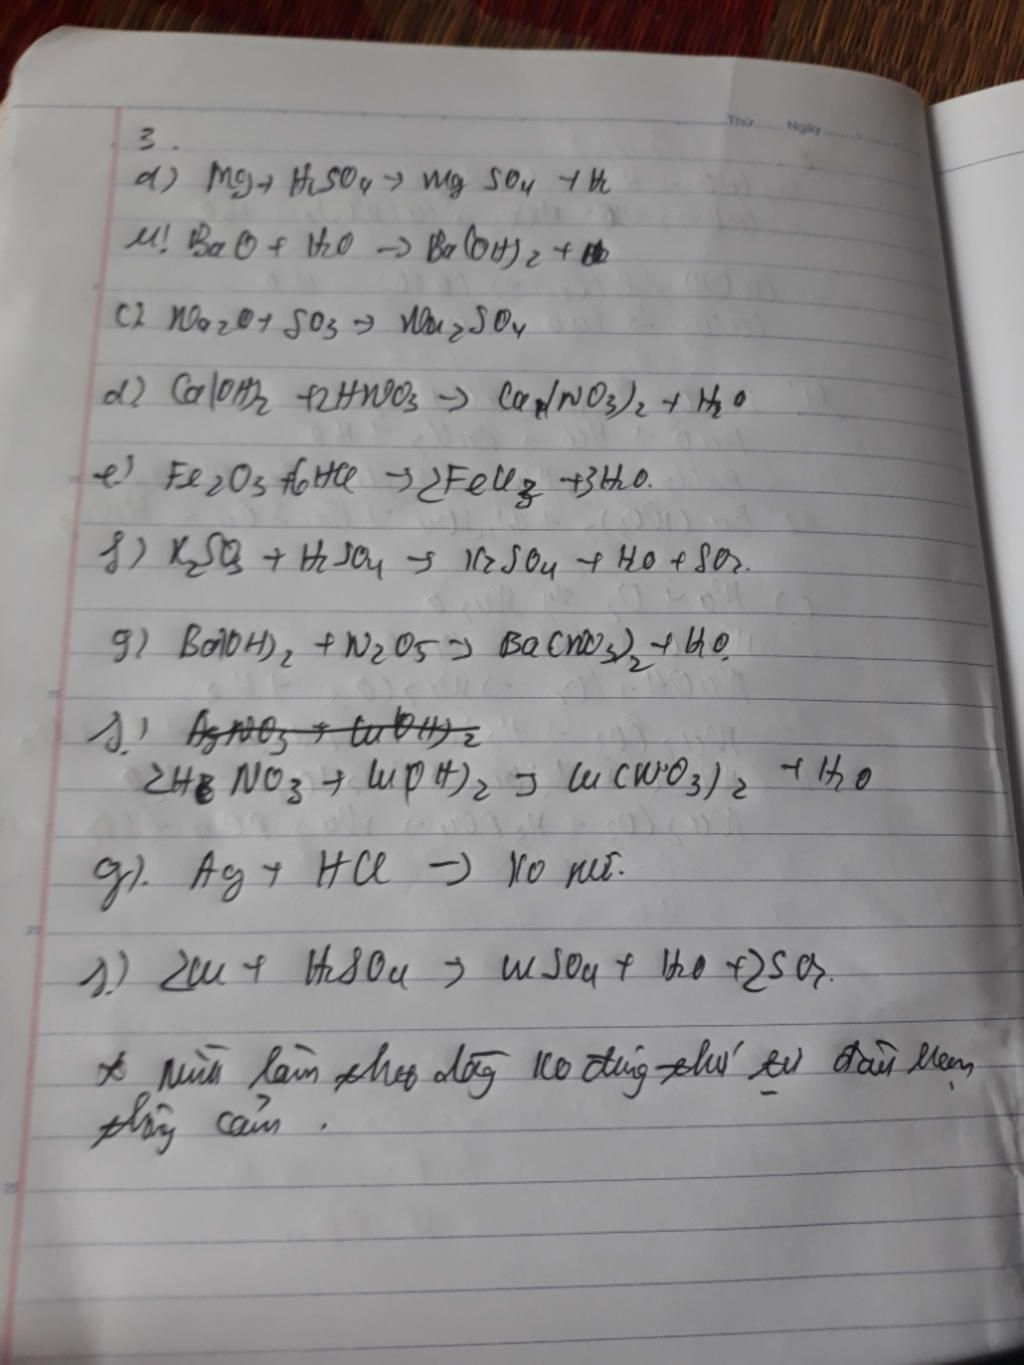 Thứ...... Ngày.............
3.
a) Mg + H2SO4 → MgSO4 + H2
BaO + H2O → Ba(OH)2 +
c) Na2O + SO3 → Na2SO4
d) Ca(OH)2 + 2HNO3 → Ca(NO3)2 + H2O
e) Fe2O3 + 6HCl → 2FeCl3 + 3H2O.
f) K2SO3 + H2SO4 → K2SO4 + H2O + SO2.
g) Ba(OH)2 + N2O5 → Ba(NO3)2 + H2O.
AgNO3 + Cu(OH)2
2HNO3 + Cu(OH)2 → Cu(NO3)2 + H2O
g). Ag + HCl → Ko
2Cu + H2SO4 → CuSO4 + H2O + 2SO2.
* làm theo dãy ko đúng thứ tự đâu